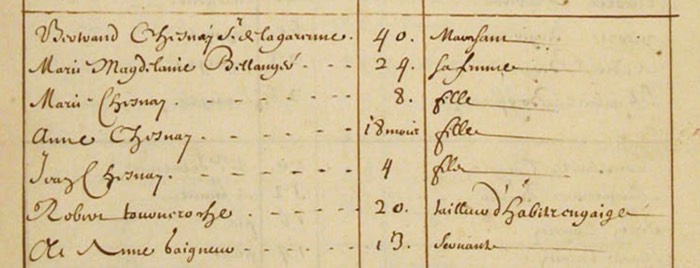 Bertrand Chesnay Sr de lagarenne. 40. Marchant
Marie Magdelaine Bellangé 24. sa femme
Marie Chesnay. 8. fille
Anne Chesnay. 18 mois fille
Jean Chesnay. 4 fils
Robert tourneroche 20. tailleur d'habitz engaigé
Anne baigneur 13. servante